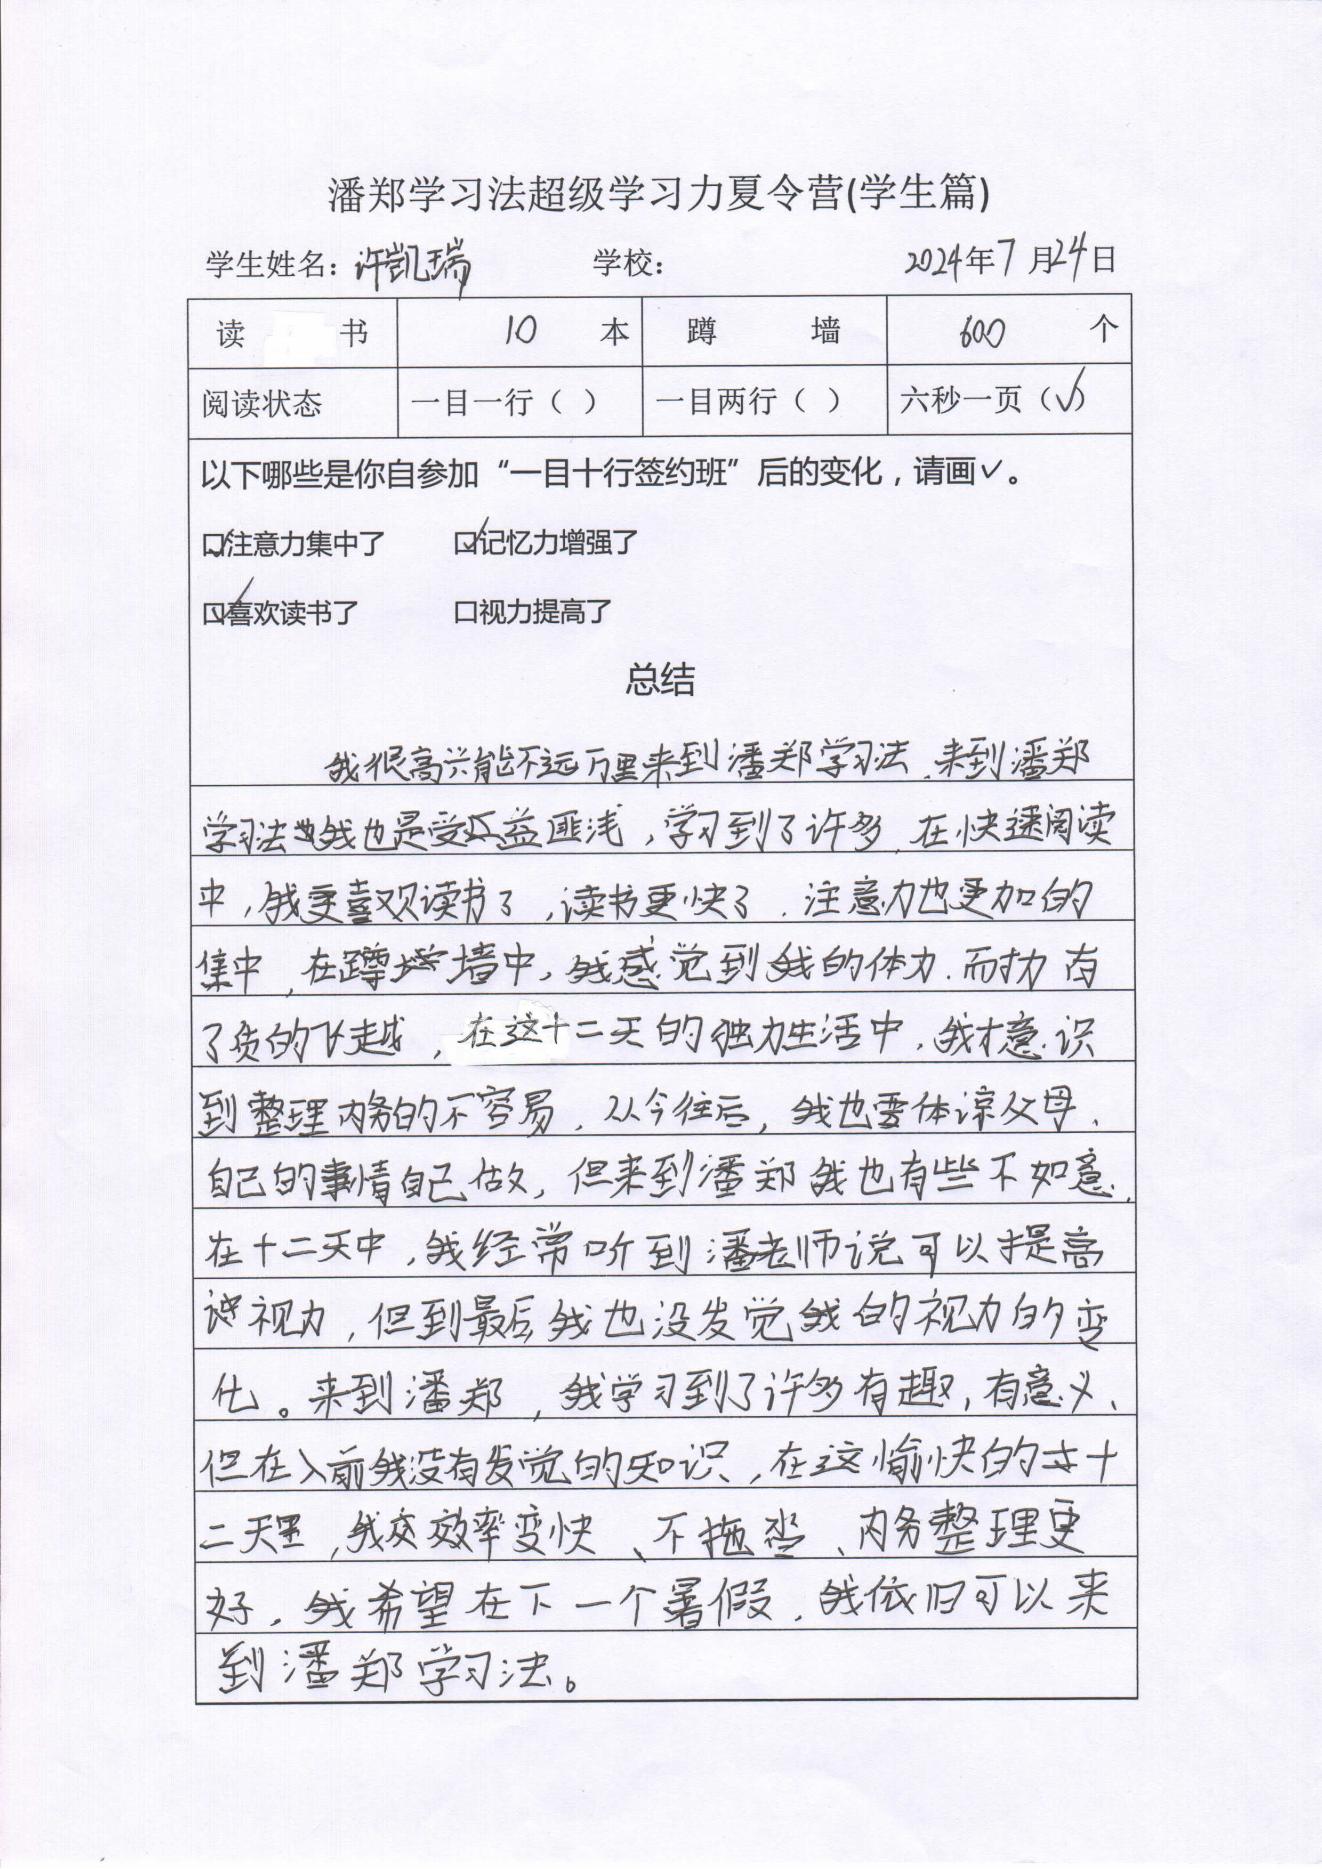 潘郑学习法超级学习力夏令营(学生篇)
学生姓名：许凯瑞 学校： 2024年7月24日
读 书 10 本 蹲 墙 600 个
阅读状态 一目一行（ ） 一目两行（ ） 六秒一页（✓）
以下哪些是你自参加“一目十行签约班”后的变化，请画✓。
☑注意力集中了 ☑记忆力增强了
☑喜欢读书了 口视力提高了
总结
我很高兴能不远万里来到潘郑学习法，来到潘郑
学习法我也是受益匪浅，学习到了许多，在快速阅读
中，我更喜欢读书了，读书更快了，注意力也更加的
集中，在蹲墙中，我感觉到我的体力、耐力有
了质的飞越，在这十二天的独立生活中，我才意识
到整理内务的不容易，从今往后，我也要体谅父母，
自己的事情自己做，但来到潘郑我也有些不如意，
在十二天中，我经常听到潘老师说可以提高
视力，但到最后我也没发觉我的视力的变
化。来到潘郑，我学习到了许多有趣，有意义、
但在入前我没有发觉的知识，在这愉快的十
二天里，我效率变快、不拖沓、内务整理更
好，我希望在下一个暑假，我依旧可以来
到潘郑学习法。